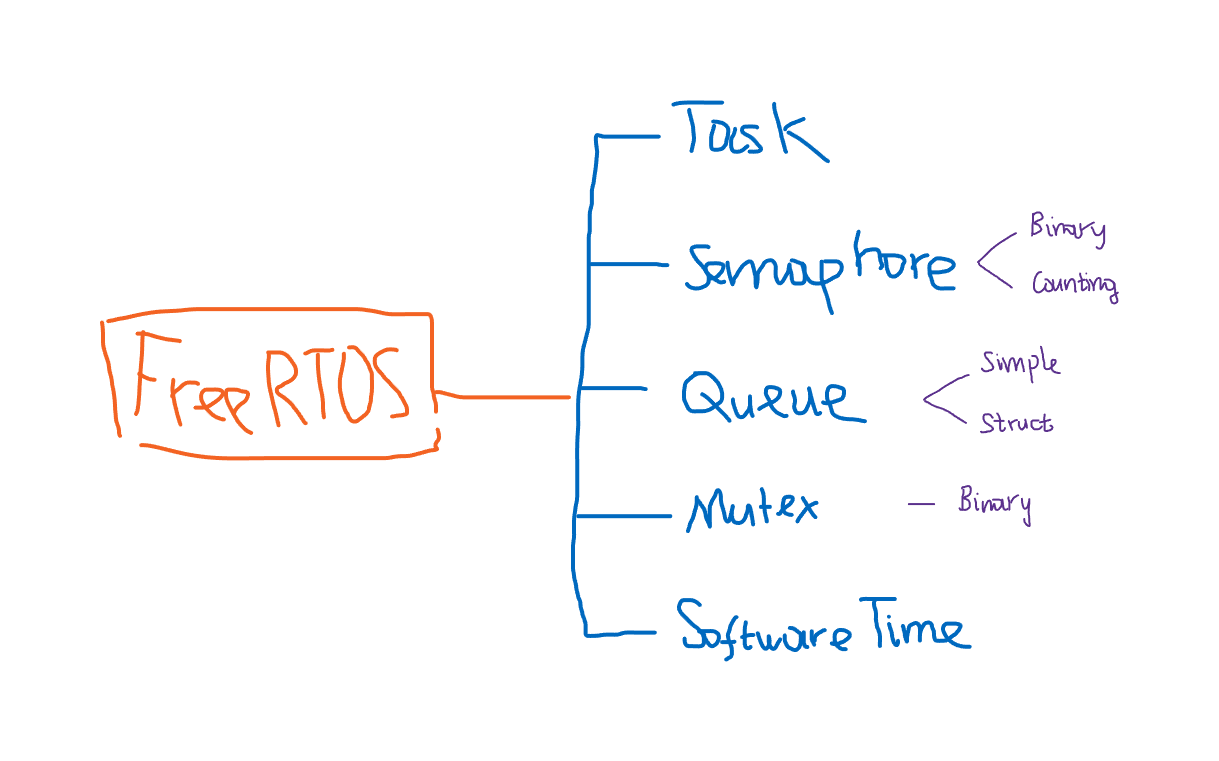 FreeRTOS
Task
Semaphore
Binary
Counting
Queue
Simple
Struct
Mutex
Binary
Software Time